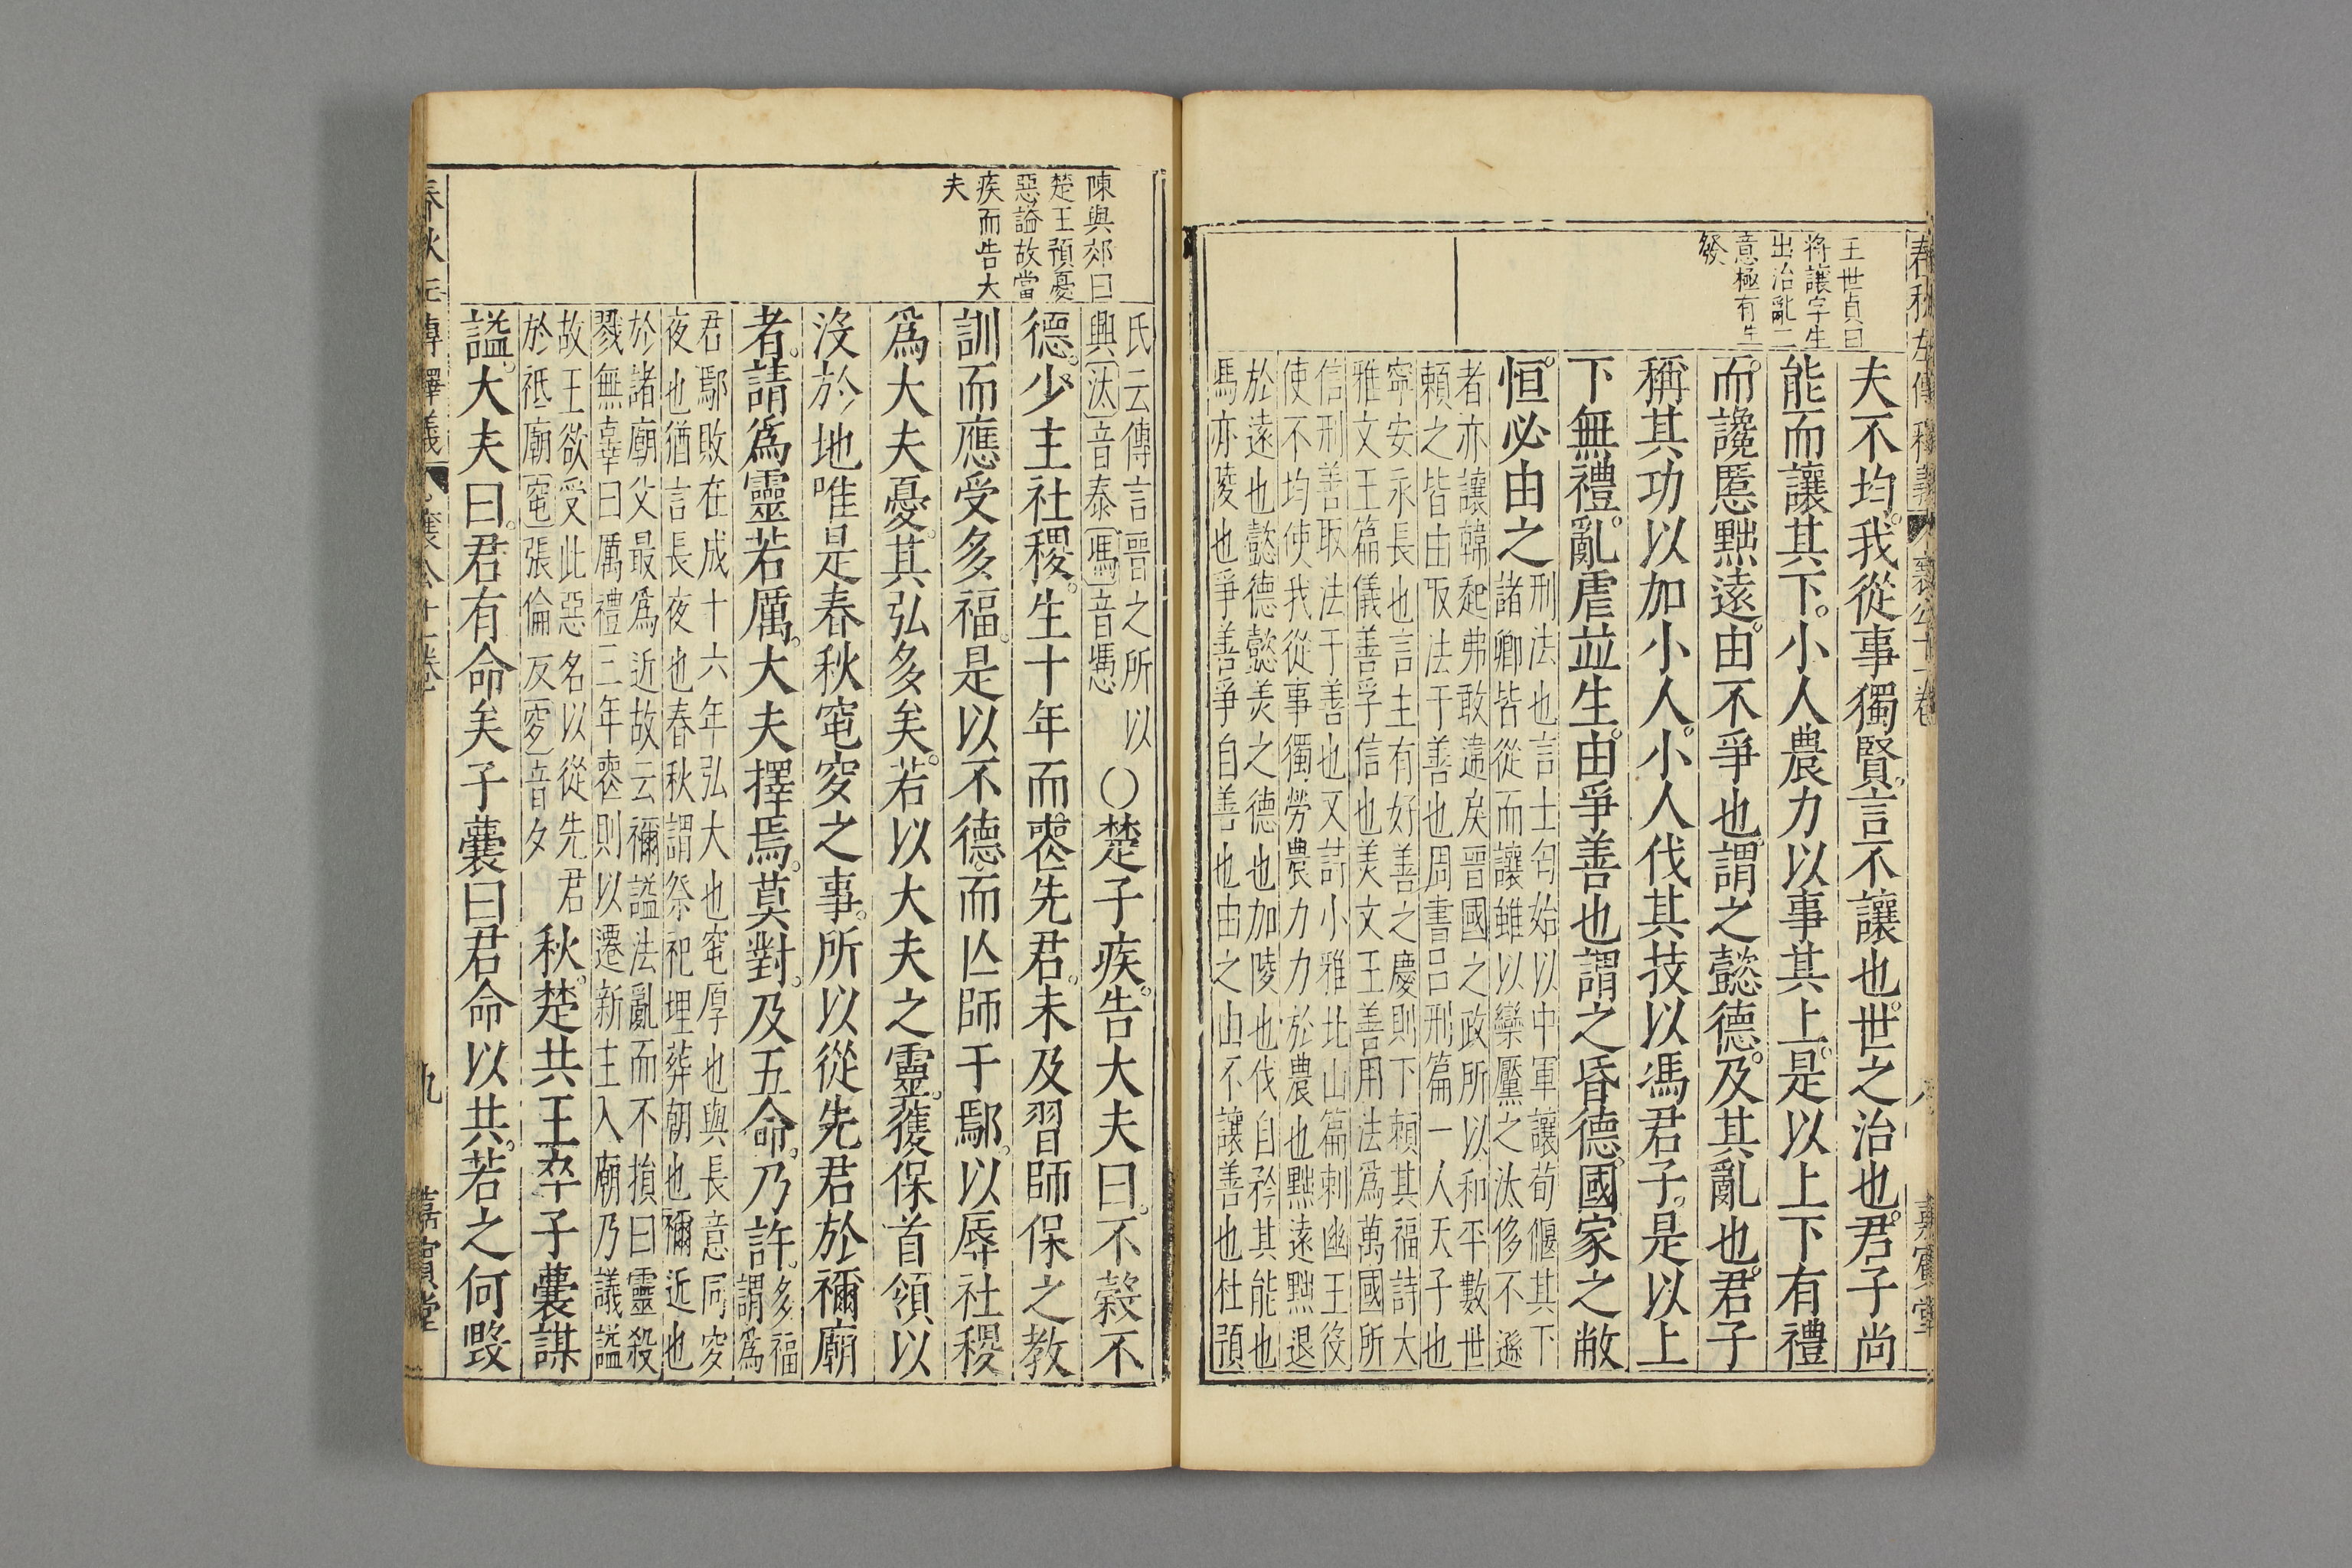 春秋左傳釋義 襄公十一卷 八 嘉賓堂
王世貞曰
将讓字生
出治亂二
意極有生
發
夫不均我從事獨賢言不讓也世之治也君子尚
能而讓其下小人農力以事其上是以上下有禮
而讒慝黜遠由不爭也謂之懿德及其亂也君子
稱其功以加小人小人伐其技以馮君子是以上
下無禮亂虐並生由爭善也謂之昏德國家之敝
恒必由之
刑法也言士匄始以中軍讓荀偃其下
諸卿皆從而讓雖以欒黶之汰侈不遜
者亦讓韓起弗敢違矣晉國之政所以和平數世
頼之皆由取法于善也周書呂刑篇一人天子也
寧安永長也言主有好善之慶則下頼其福詩大
雅文王篇儀善孚信也美文王善用法爲萬國所
信刑善取法于善也又詩小雅北山篇刺幽王役
使不均使我從事獨勞農力力於農也黜遠黜退
於遠也懿德懿美之德也加陵也伐自矜其能也
馮亦陵也爭善爭自善也由之由不讓善也杜預
陳與郊曰
楚王預憂
惡謚故當
疾而告大
夫
氏云傳言晉之所以
興汰音泰馮音憑
○楚子疾告大夫曰不穀不
德少主社稷生十年而喪先君未及習師保之教
訓而應受多福是以不德而亾師于鄢以辱社稷
爲大夫憂其弘多矣若以大夫之靈獲保首領以
沒於地唯是春秋窀穸之事所以從先君於禰廟
者請爲靈若厲大夫擇焉莫對及五命乃許
多福
謂爲
君鄢敗在成十六年弘大也窀厚也與長意同穸
夜也猶言長夜夜也春秋謂祭祀埋葬朝也禰近也
於諸廟父最爲近故云禰謚法亂而不損曰靈殺
戮無辜曰厲禮三年喪則以遷新主入廟乃議謚
故王欲受此惡名以從先君
於祗廟窀張倫反穸音夕
秋楚共王卒子囊謀
謚大夫曰君有命矣子囊曰君命以共若之何毁
春秋左傳釋義 襄公十一卷 九 嘉賓堂